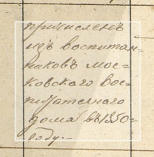 причисленъ
изъ воспитан-
никовъ Мос-
ковскаго Вос-
питательнаго
дома въ 1850-
году.